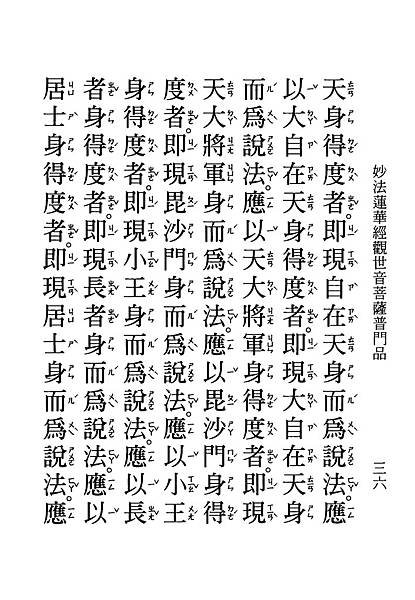 妙法蓮華經觀世音菩薩普門品　三六
天身得度者。即現自在天身而爲說法。應
以大自在天身得度者。即現大自在天身
而爲說法。應以天大將軍身得度者。即現
天大將軍身而爲說法。應以毘沙門身得
度者。即現毘沙門身而爲說法。應以小王
身得度者。即現小王身而爲說法。應以長
者身得度者。即現長者身而爲說法。應以
居士身得度者。即現居士身而爲說法。應